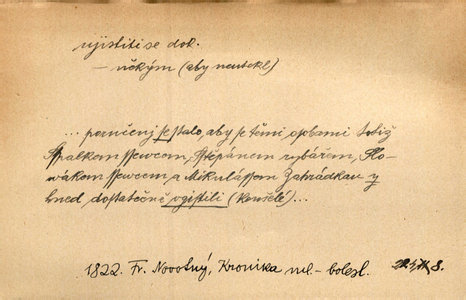 ujistiti se dok.
— někým (aby neutekl)
... poručenj se stalo, aby se těmi osobami totiž
Sspalkem sewcem, Sstěpánem rybářem, Slo-
wákem sewcem a Mikulássem Zahrádkau y
hned dostatečně vgistili (konšelé)...
1822. Fr. Novotný, Kronika ml.-bolesl.